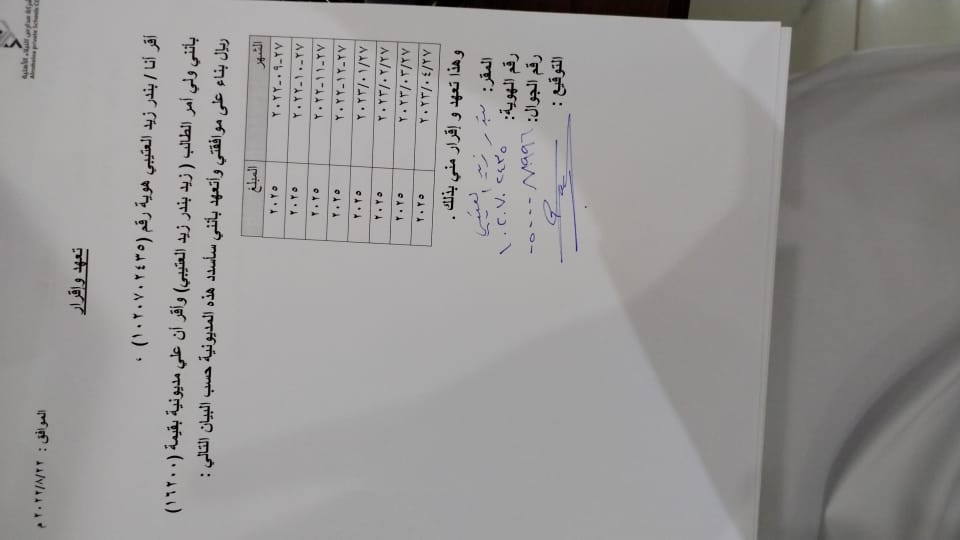 الموافق : ٢٠٢٢/٨/٢٢ م
تعهد وإقرار
أقر أنا / بندر زيد العتيبي هوية رقم (١٠٢٠٧٠٢٤٣٥) ،
بأنني ولي أمر الطالب ( زيد بندر زيد العتيبي) وأقر أن علي مديونية بقيمة (١٦٢٠٠)
ريال بناء على موافقتي وأتعهد بأنني سأسدد هذه المديونية حسب البيان التالي :
الشهر المبلغ
٢٠٢٢-٠٩-٢٧ ٢٠٢٥
٢٠٢٢-١٠-٢٧ ٢٠٢٥
٢٠٢٢-١١-٢٧ ٢٠٢٥
٢٠٢٢-١٢-٢٧ ٢٠٢٥
٢٠٢٣/٠١/٢٧ ٢٠٢٥
٢٠٢٣/٠٢/٢٧ ٢٠٢٥
٢٠٢٣/٠٣/٢٧ ٢٠٢٥
٢٠٢٣/٠٤/٢٧ ٢٠٢٥
وهذا تعهد و إقرار مني بذلك .
المقر: بندر زيد العتيبي
رقم الهوية: ١٠٢٠٧٠٢٤٣٥
رقم الجوال:
التوقيع :